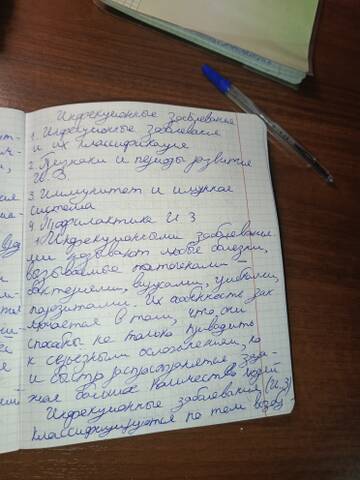 Инфекционные заболевание
1. Инфекционные заболевания
и их классификация
2. Признаки и периоды развития
И. З
3. Иммунитет и имунная
система
4. Профилактика И З
1. Инфекционными заболевания
ми называют любые болезни,
вызываемые патогенами –
бактериями, вирусами, грибами,
паразитами. Их особенность зак
лючается в том, что они
способны не только приводить
к серьезным осложнениям, но
и быстро распространяется, зара-
жая большое количество людей
Инфекционные заболевания (И.З)
классифицируются по тем возбу-